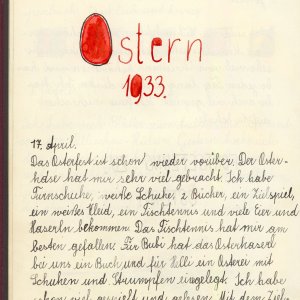 Ostern
1933.
17. April.
Das Osterfest ist schon wieder vorüber. Der Oster-
hase hat mir sehr viel gebracht. Ich habe
Turnschuhe, weiße Schuhe, 2 Bücher, ein Zielspiel,
ein weißes Kleid, ein Tischtennis und viele Eier und
Haserln bekommen. Das Tischtennis hat mir am
besten gefallen. Für Bubi hat das Osterhaserl
bei uns ein Buch und für Helli ein Osterei mit
Schuhen und Strümpfen eingelegt. Ich habe
schon viel gespielt und gelesen. Mit dem Ziel-